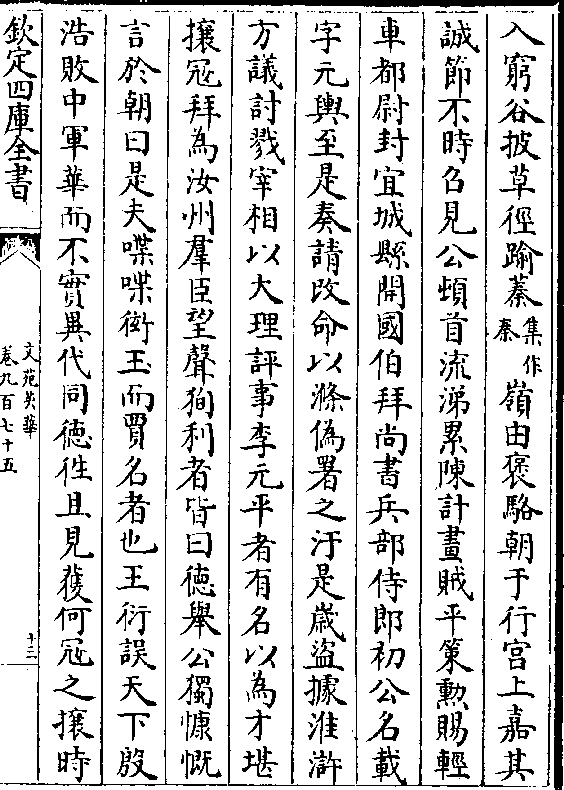 入窮谷披草徑踰蓁集作秦嶺由褒駱朝于行宫上嘉其
誠節不時召見公頓首流涕累陳計畫賊平策勲賜輕
車都尉封宜城縣開國伯拜尚書兵部侍郎初公名載
字元輿至是奏請改命以滌偽署之汙是嵗盜據淮滸
方議討戮宰相以大理評事李元平者有名以為才堪
攘冦拜為汝州羣臣望聲狥利者皆曰徳舉公獨慷慨
言於朝曰是夫喋喋衒玉而賈名者也王衍誤天下殷
浩敗中軍華而不實異代同徳徃且見獲何冦之攘時
欽定四庫全書
文苑英華
卷九百七十五
十三